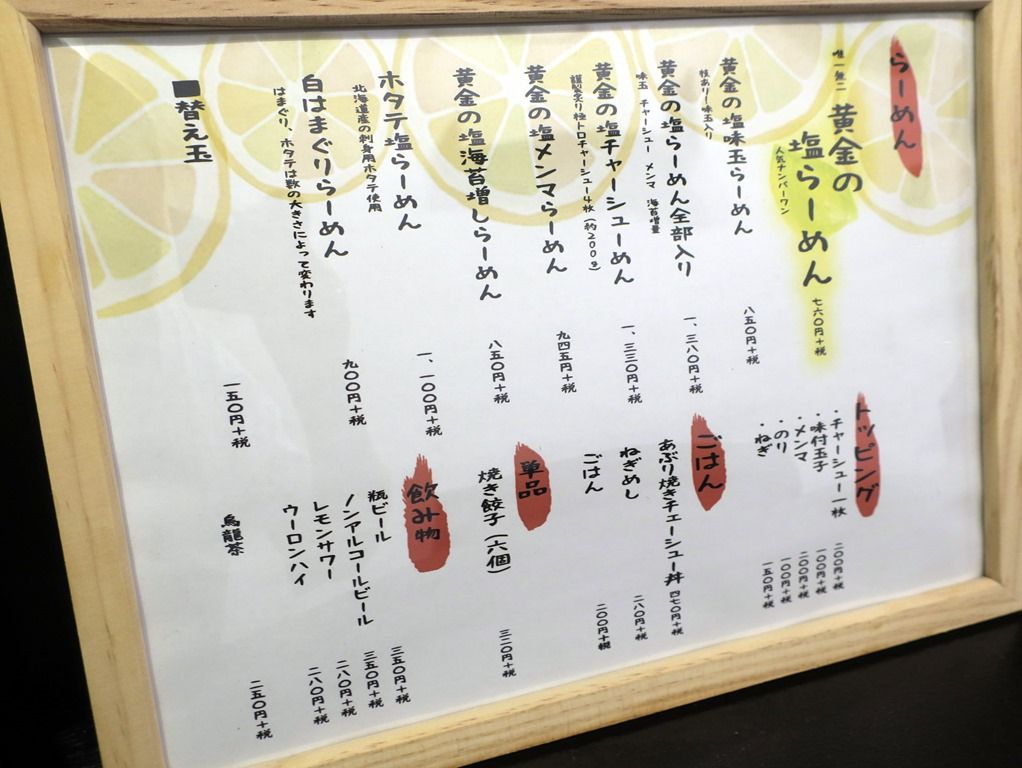 らーめん
唯一無二
黄金の
塩らーめん
人気ナンバーワン
七六〇円+税
黄金の塩味玉らーめん
技あり!味玉入り
八五〇円+税
黄金の塩らーめん全部入り
味玉 チャーシュー メンマ 海苔増量
一、三八〇円+税
黄金の塩チャーシューめん
トロチャーシュー4枚(約200g)
一、三三〇円+税
黄金の塩メンマらーめん
九四五円+税
黄金の塩海苔増しらーめん
八五〇円+税
ホタテ塩らーめん
北海道産の刺身用ホタテ使用
一、一〇〇円+税
白はまぐりらーめん
はまぐり、ホタテは数の大きさによって変わります
九〇〇円+税
■替え玉
一五〇円+税
トッピング
・チャーシュー一枚 二〇〇円+税
・味付玉子 一〇〇円+税
・メンマ 二〇〇円+税
・のり 一〇〇円+税
・ねぎ 一五〇円+税
ごはん
あぶり焼きチェーシュー丼 四七〇円+税
ねぎめし 二八〇円+税
ごはん 二〇〇円+税
単品
焼き餃子(六個) 三二〇円+税
飲み物
瓶ビール 三五〇円+税
ノンアルコールビール 三五〇円+税
レモンサワー 二八〇円+税
ウーロンハイ 二八〇円+税
烏龍茶 二五〇円+税